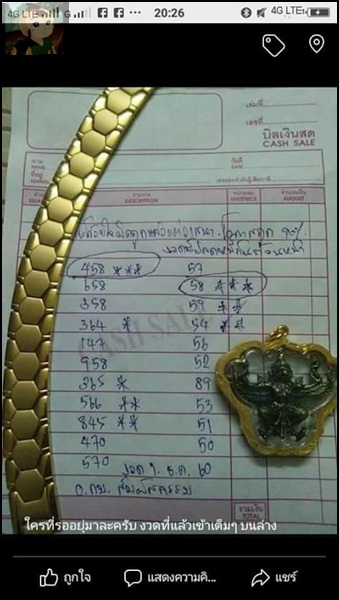 4G LTE
G
...
20:26
4G LTE
เล่มที่
เลขที่
บิลเงินสด
CASH SALE
นาม
NAME
วันที่
DATE
ที่อยู่
รายการ
DESCRIPTION
หน่วยละ
UNIT PRICE
จำนวนเงิน
AMOUNT
458 *** 57
658 58 ***
358 59 **
364 * 54 **
147 56
958 52
365 * 89
566 ** 53
845 ** 51
470 50
570 งวด 1. ธ.ค. 60
CASH SALE
รวมเงิน
TOTAL
ใครที่รออยู่มาละครับ งวดที่แล้วเข้าเต็มๆ บนล่าง
ถูกใจ
แสดงความคิ...
แชร์